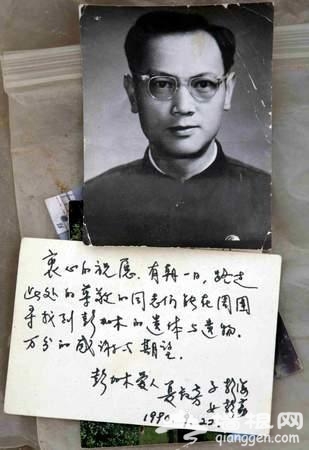 衷心的祝愿，有朝一日，路过
此处的尊敬的同志们能在周围
寻找到彭加木的遗体与遗物，
万分的感谢与期望。
彭加木爱人 夏叔芳 子 彭海
女 彭荔
墙根网
qianggen.com